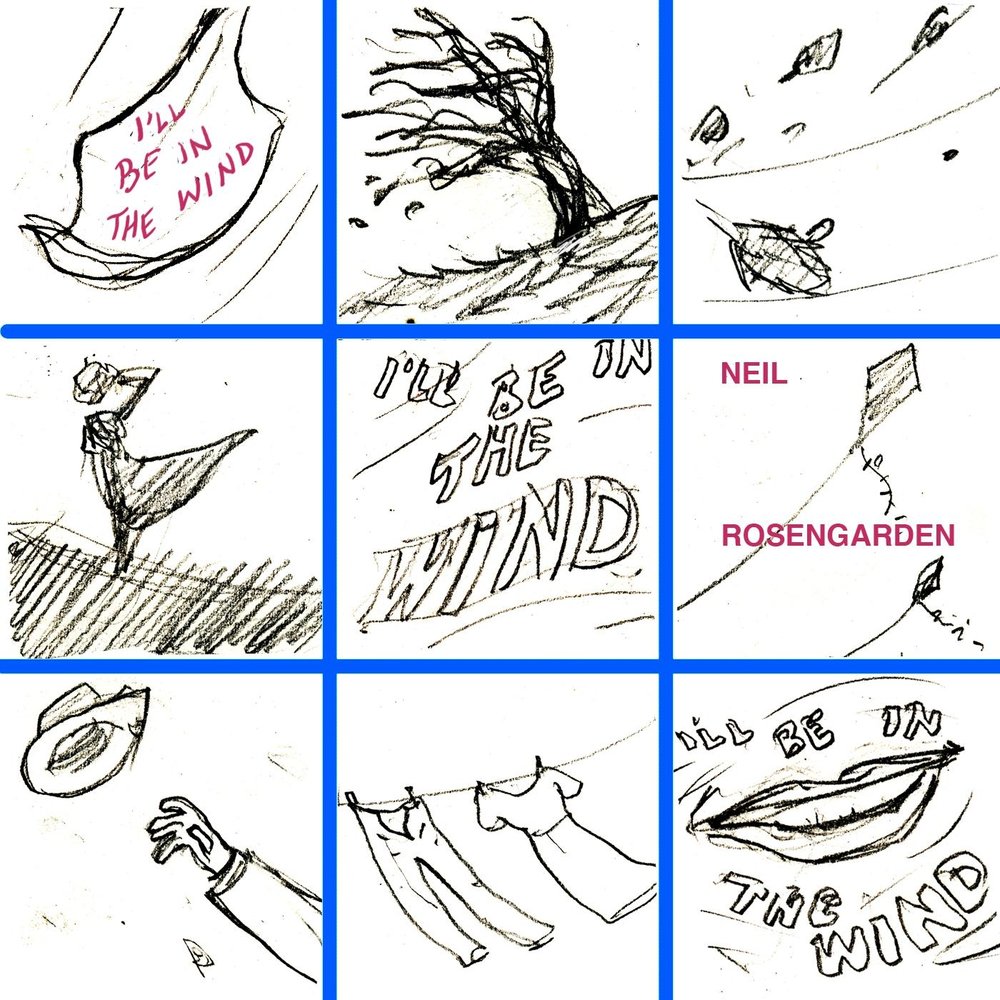 I'LL
BE IN
THE WIND
I'LL BE IN
THE
WIND
NEIL
ROSENGARDEN
I'LL BE IN
THE
WIND